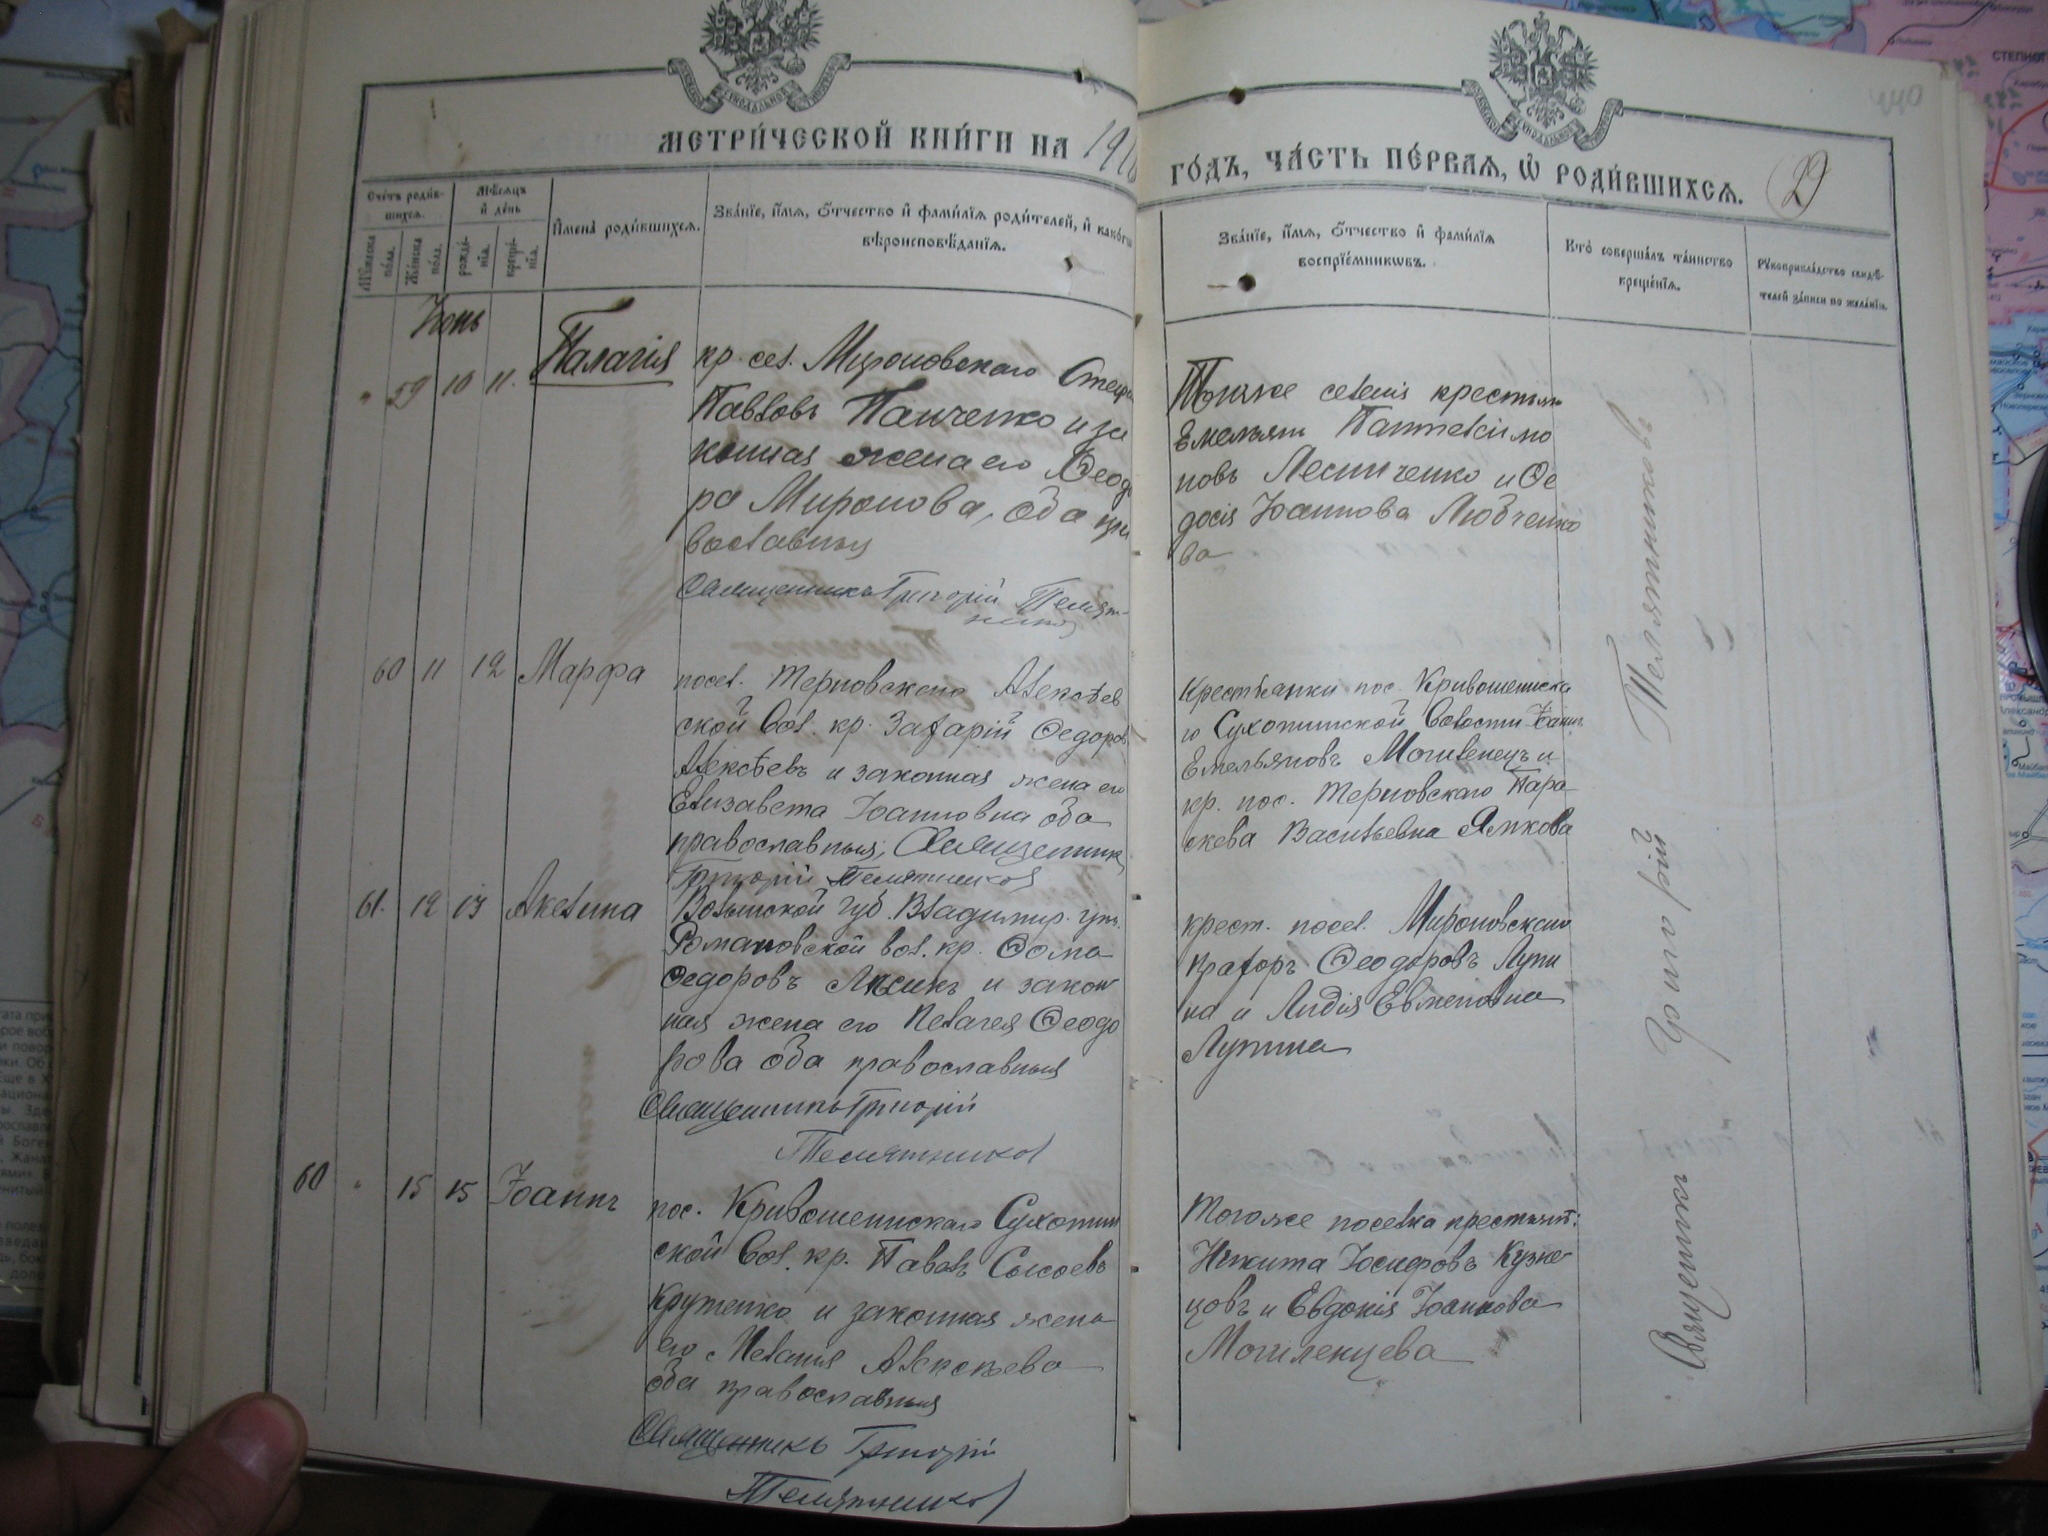 МЕТРИ́ЧЕСКОЙ КНИ́ГИ НА 19
ГО́ДЪ, ЧА́СТЬ ПЕ́РВАЯ, Ѽ РОДИ́ВШИХСЯ. 29
440
Сче́тъ роди́в-
шихся.
Мѣ́сяцъ
и́ де́нь
И҆мена̀ роди́вшихся.
Зва́нїе, и҆́мя, ѻ҆́тчество и҆ фами́лїя роди́телей, и҆ како́гѡ
вѣроисповѣ́данїя.
Му́жеска
по́ла.
Же́нска
по́ла.
рожде́-
нїя.
креще́-
нїя.
Зва́нїе, и҆́мя, ѻ҆́тчество и҆ фами́лїя
воспрїе́мникѡвъ.
Кто̀ соверша́лъ та́инство
креще́нїя.
Рꙋкоприкла́дство свидѣ́-
телей за́писи по жела́нїю.
Іюнь
" 59 10 11. Палагія
кр. сел. Мироновскаго Стефа
Павловъ Панченко и за
конная жена его Ѳеодо
ра Миронова, оба пра
вославныя
Священникъ Григорій Телят-
никовъ
Тогоже селенія крестьян
Емельянъ Пантелеимо
новъ Лесниченко и Ѳе
досія Іоаннова Любченко
ва
60 11 12 Марфа
посел. Терновскаго Алексѣев
ской вол. кр. Захарій Ѳедоров
Алексѣевъ и законная жена его
Елизавета Іоанновна оба
православныя, Священникъ
Григорій Телятниковъ
Крестьянки пос. Кривошеинска
го Сухотинской волости Іоанн
Емельяновъ Могиленецъ и
кр. пос. Терновскаго Пара
скева Васильевна Ямкова
61. 12 13 Акелина
Волынской губ. Владимир. у.
Романовской вол. кр. Ѳома
Ѳедоровъ и закон
ная жена его Пелагея Ѳеодо
рова оба православныя
Священникъ Григорій
Телятниковъ
крест. посел. Мироновскаго
Ѳеодоровъ Лупи
на и Лидія Евменовна
Лупина
60 " 15 15 Іоаннъ
пос. Кривошеинскаго Сухотин
ской вол. кр. Павелъ Сысоевъ
Крутенко и законная жена
его Меланія Алексѣева
оба православныя
Священникъ Григорій
Телятниковъ
Тогоже поселка крестьян:
Никита Іосифовъ Кузне
цовъ и Евдокія Іоаннова
Могиленцева
Священникъ Григорій Телятниковъ